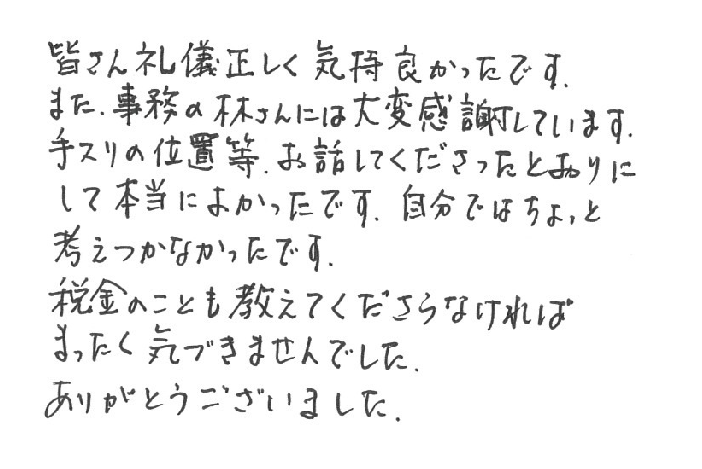 皆さん礼儀正しく気持良かったです.
また、事務の林さんには大変感謝しています.
手スリの位置等、お話してくださったとおりに
して本当によかったです. 自分ではちょっと
考えつかなかったです.
税金のことも教えてくださらなければ
まったく気づきませんでした.
ありがとうございました.